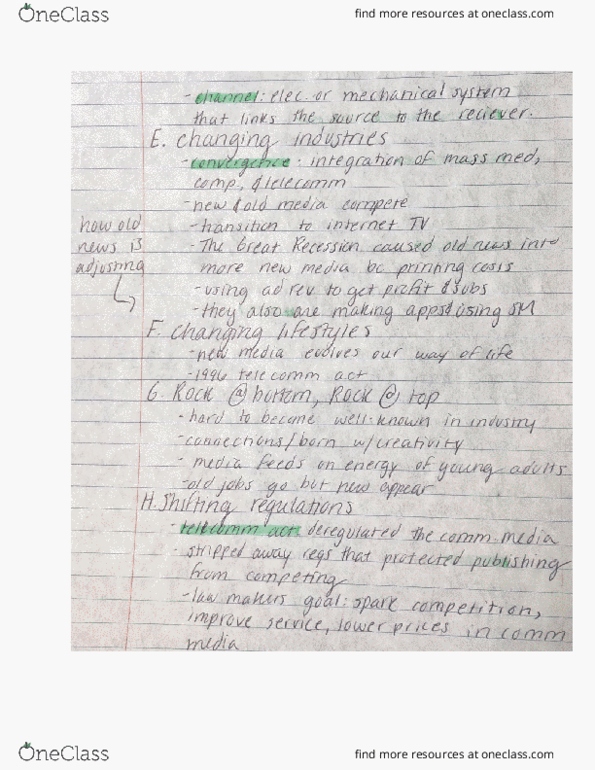 OneClass
find more resources at oneclass.com
- channel: elec. or mechanical system
that links the source to the reciever.
E. changing industries
- convergence: integration of mass med,
comp., & telecomm
- new & old media compete
- transition to internet TV
- The Great Recession caused old news into
more new media bc printing costs
- using ad rev to get profit & subs
- they also are making apps & using SM
how old
news is
adjusting
F. changing lifestyles
- new media evolves our way of life
- 1996 telecomm act
G. Rock @ bottom, Rock @ top
- hard to become well-known in industry
- connections/born w/creativity
- media feeds on energy of young adults
- old jobs go but new appear
H. Shifting regulations
- telecomm act: deregulated the comm media
- stripped away regs that protected publishing
from competing
- law makers goal: spark competition,
improve service, lower prices in comm
media
OneClass
find more resources at oneclass.com